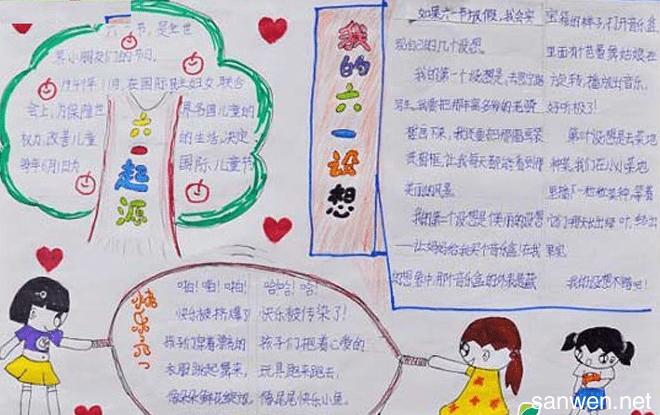 六一节,是全世
界小朋友们的节日。
1949年11月,在国际民主妇女联合
会上,为保障世界各国儿童的
权力,改善儿童的生活,决定
每年6月1日为国际儿童节
六一起源
我的六一设想
如果六一节放假,我会实
现自己的几个设想。
我的第一个设想是:去
写生。我要把那
画下来,我还要把那幅画装
进相框,让我每天都能看到那
美丽的风景。
我的第二个设想是
——让妈妈给我买个音乐盒!在我
幻想集中,那个音乐盒的外表是藏
宝箱的样子,打开音乐盒,
里面有个芭蕾舞姑娘在
旋转,播放出音乐,
好听极了!
第个设想是去菜地
种菜,我们在小小菜地
里播下一粒粒菜种,等着
它们明天长出绿叶,结出
果
我的设想不错吧!
快乐六一
啪!啪!啪!
快乐被挤爆了
孩子们穿着漂亮的
衣服跳起舞来,
像朵朵鲜花绽放。
哈哈!哈!
快乐被传染了!
孩子们抱着心爱的
玩具跑来跑去,
像尾尾快乐小鱼。
sanwen.net